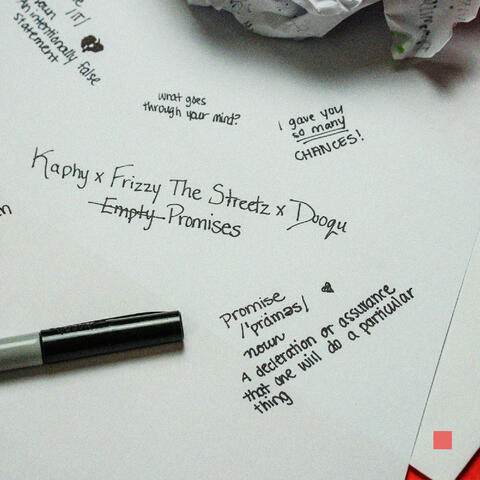 /lī/
noun
An intentionally false
statement
what goes
through your mind?
I gave you
so many
CHANCES!
Kaphy x Frizzy The Streetz x Duoqu
Empty Promises
Promise
/'präməs/
noun
A decleration or assurance
that one will do a particular
thing